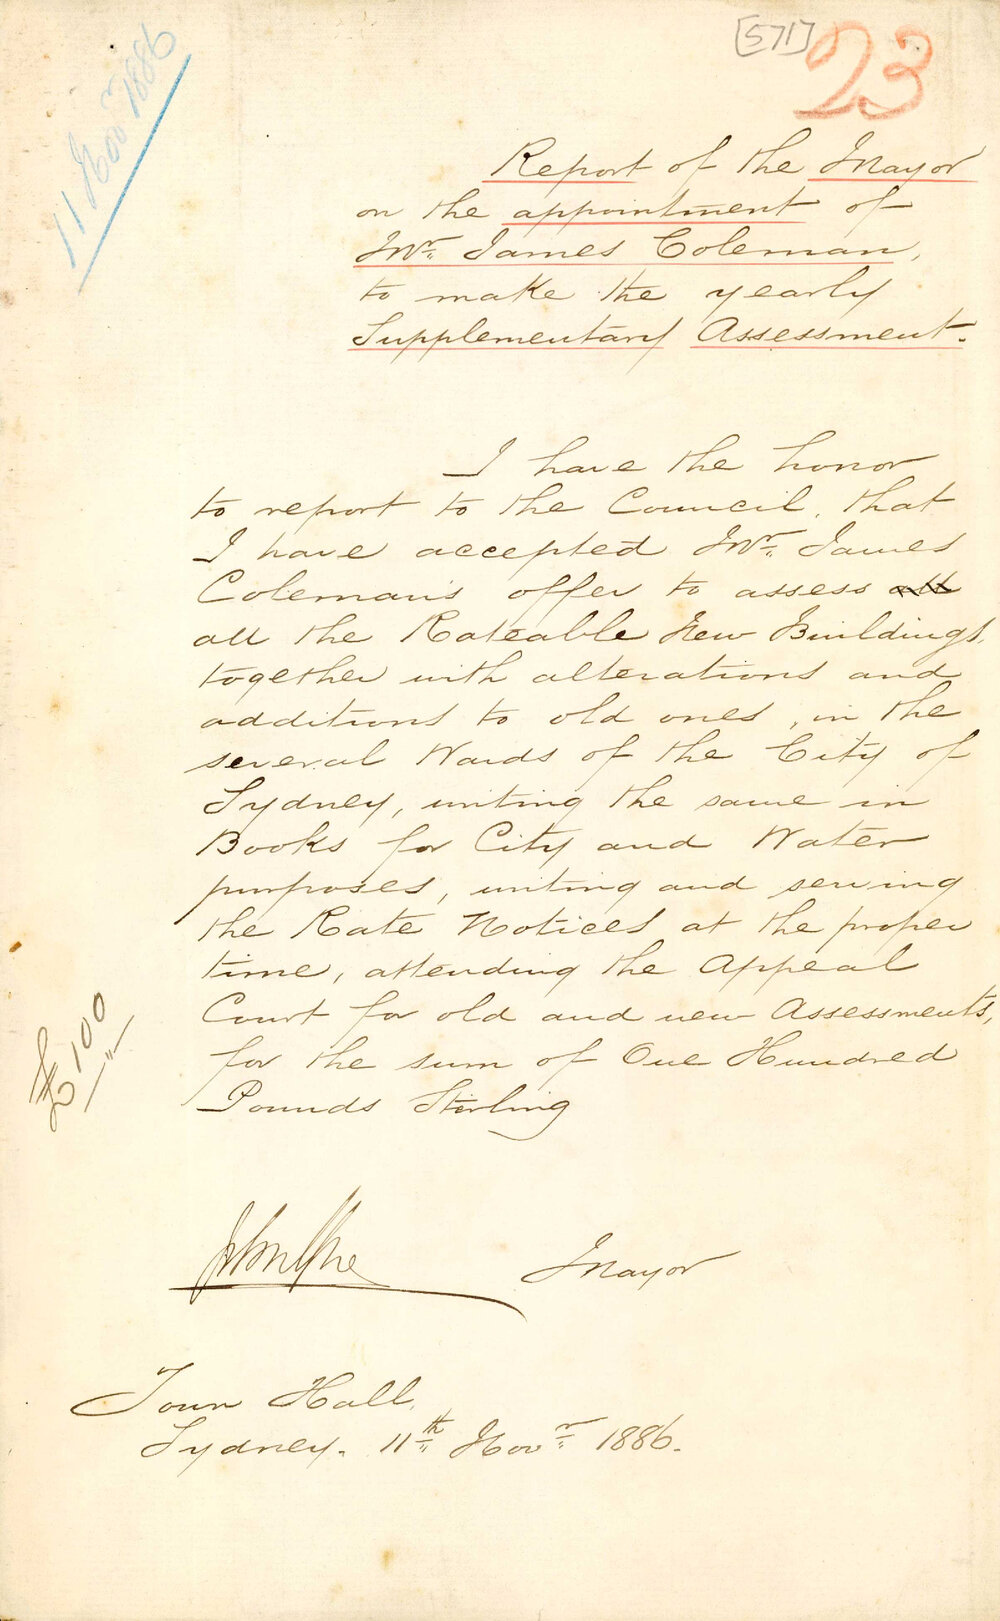 [571] 23
11 Novr 1886
Report of the Mayor
on the appointment of
Mr. James Coleman,
to make the yearly
Supplementary Assessment.
I have the honor
to report to the Council, that
I have accepted Mr. James
Coleman's offer to assess all
all the Rateable New Buildings,
together with alterations and
additions to old ones, in the
several Wards of the City of
Sydney, writing the same in
Books for City and Water
purposes, writing and serving
the Rate Notices at the proper
time, attending the Appeal
Court for old and new Assessments,
for the sum of One Hundred
Pounds Stirling
£100
Mayor
Town Hall,
Sydney. 11th Novr 1886.